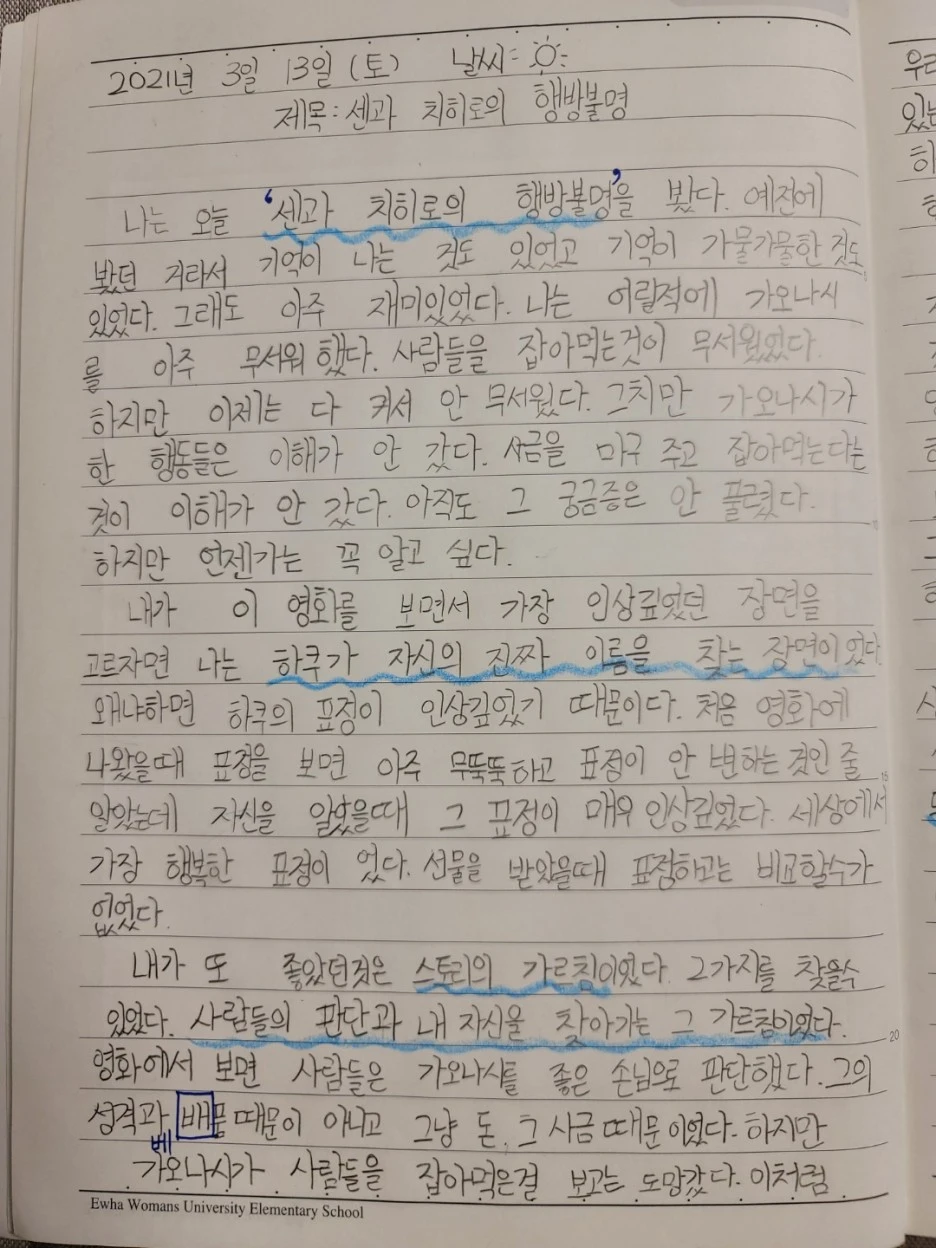 2021년 3일 13일 (토) 날씨:
제목: 센과 치히로의 행방불명
나는 오늘 '센과 치히로의 행방불명'을 봤다. 예전에
봤던 거라서 기억이 나는 것도 있었고 기억이 가물가물한 것도
있었다. 그래도 아주 재미있었다. 나는 어릴적에 가오나시
를 아주 무서워 했다. 사람들을 잡아먹는것이 무서웠었다.
하지만 이제는 다 커서 안 무서웠다. 그치만 가오나시가
한 행동들은 이해가 안 갔다. 사금을 마구 주고 잡아먹는다는
것이 이해가 안 갔다. 아직도 그 궁금증은 안 풀렸다.
하지만 언젠가는 꼭 알고 싶다.
내가 이 영화를 보면서 가장 인상깊었던 장면을
고르자면 나는 하쿠가 자신의 진짜 이름을 찾는 장면이었다
왜냐하면 하쿠의 표정이 인상깊었기 때문이다. 처음 영화에
나왔을때 표정을 보면 아주 무뚝뚝하고 표정이 안 변하는 것인 줄
알았는데 자신을 알았을때 그 표정이 매우 인상깊었다. 세상에서
가장 행복한 표정이 었다. 선물을 받았을때 표정하고는 비교할수가
없었다.
내가 또 좋았던것은 스토리의 가르침이였다. 2가지를 찾을수
있었다. 사람들의 판단과 내 자신을 찾아가는 그 가르침이였다.
영화에서 보면 사람들은 가오나시를 좋은 손님으로 판단했다. 그의
성격과 배품 때문이 아니고 그냥 돈, 그 사금 때문 이었다. 하지만
베
가오나시가 사람들을 잡아먹은걸 보고는 도망갔다. 이처럼
Ewha Womans University Elementary School
15
20